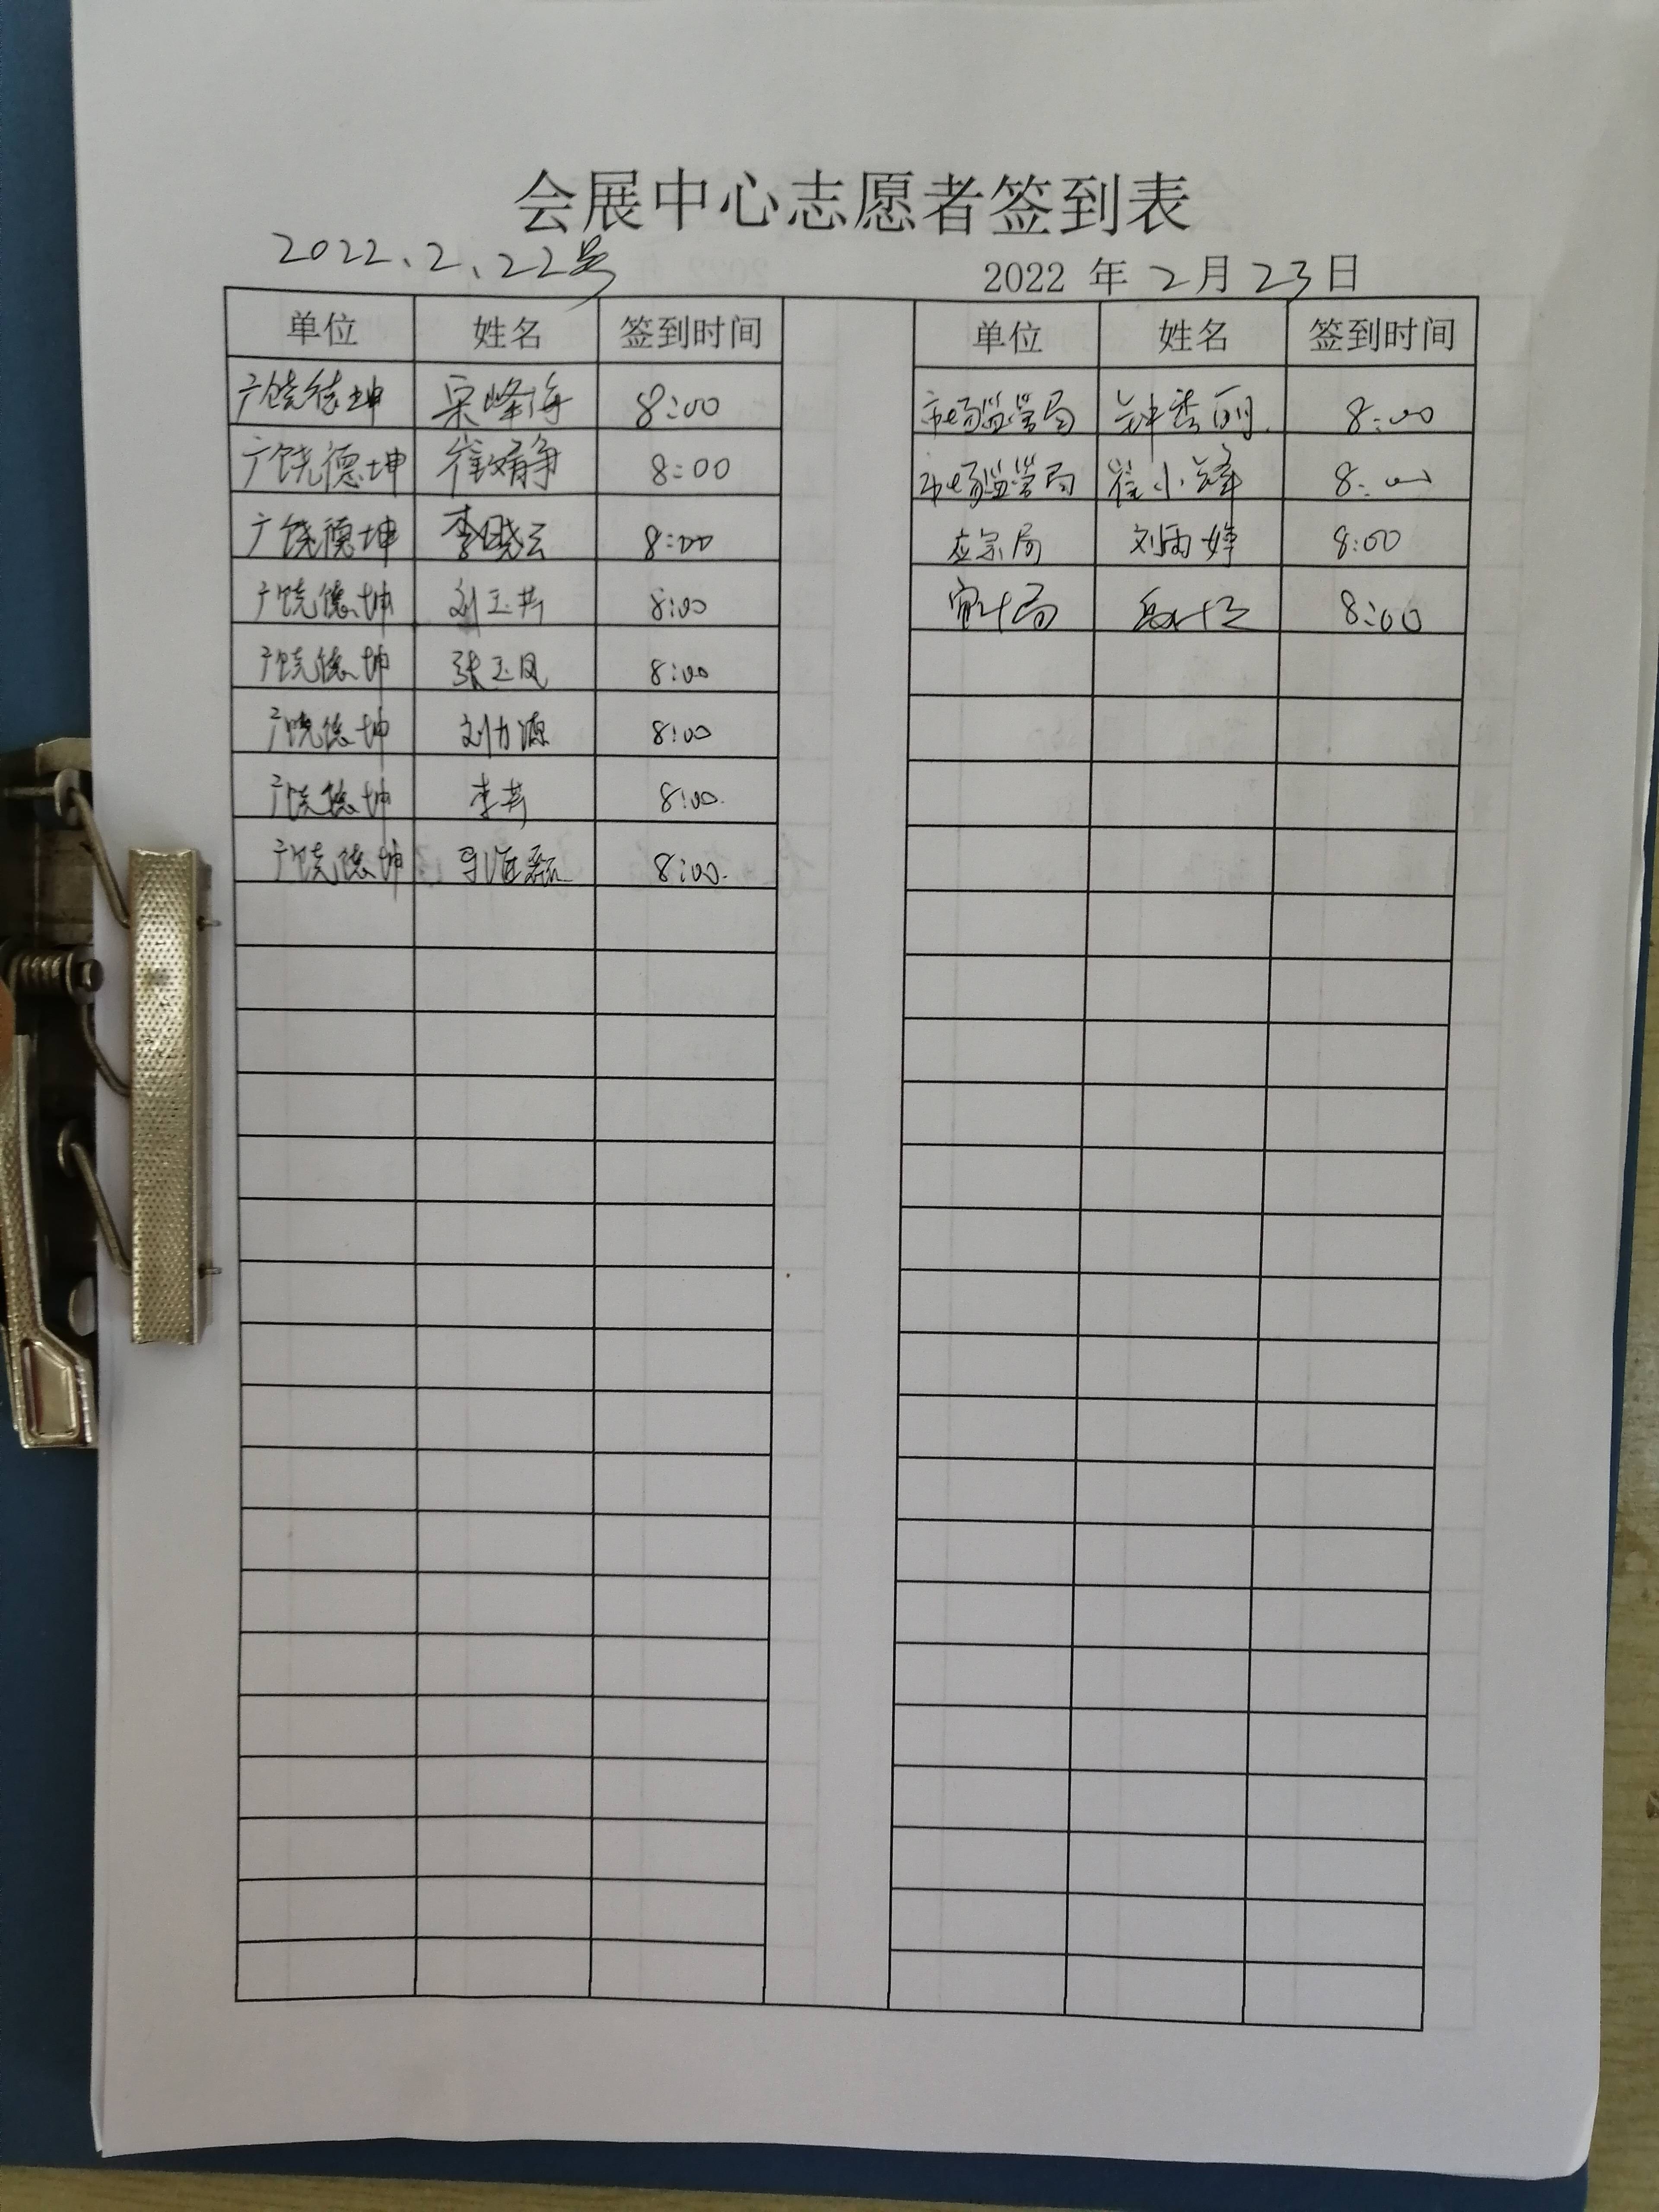 会展中心志愿者签到表
2022、2、22号
2022 年 2月 23日
单位 姓名 签到时间 单位 姓名 签到时间
广饶德坤 宋峰海 8:00 市场监管局 钟秀丽 8:00
广饶德坤 崔婧静 8:00 市场监管局 崔小峰 8:00
广饶德坤 李晓云 8:00 应急局 刘雨婷 8:00
广饶德坤 刘玉芹 8:00 审计局 8:00
广饶德坤 张玉凤 8:00
广饶德坤 刘力源 8:00
广饶德坤 李芹 8:00
广饶德坤 8:00